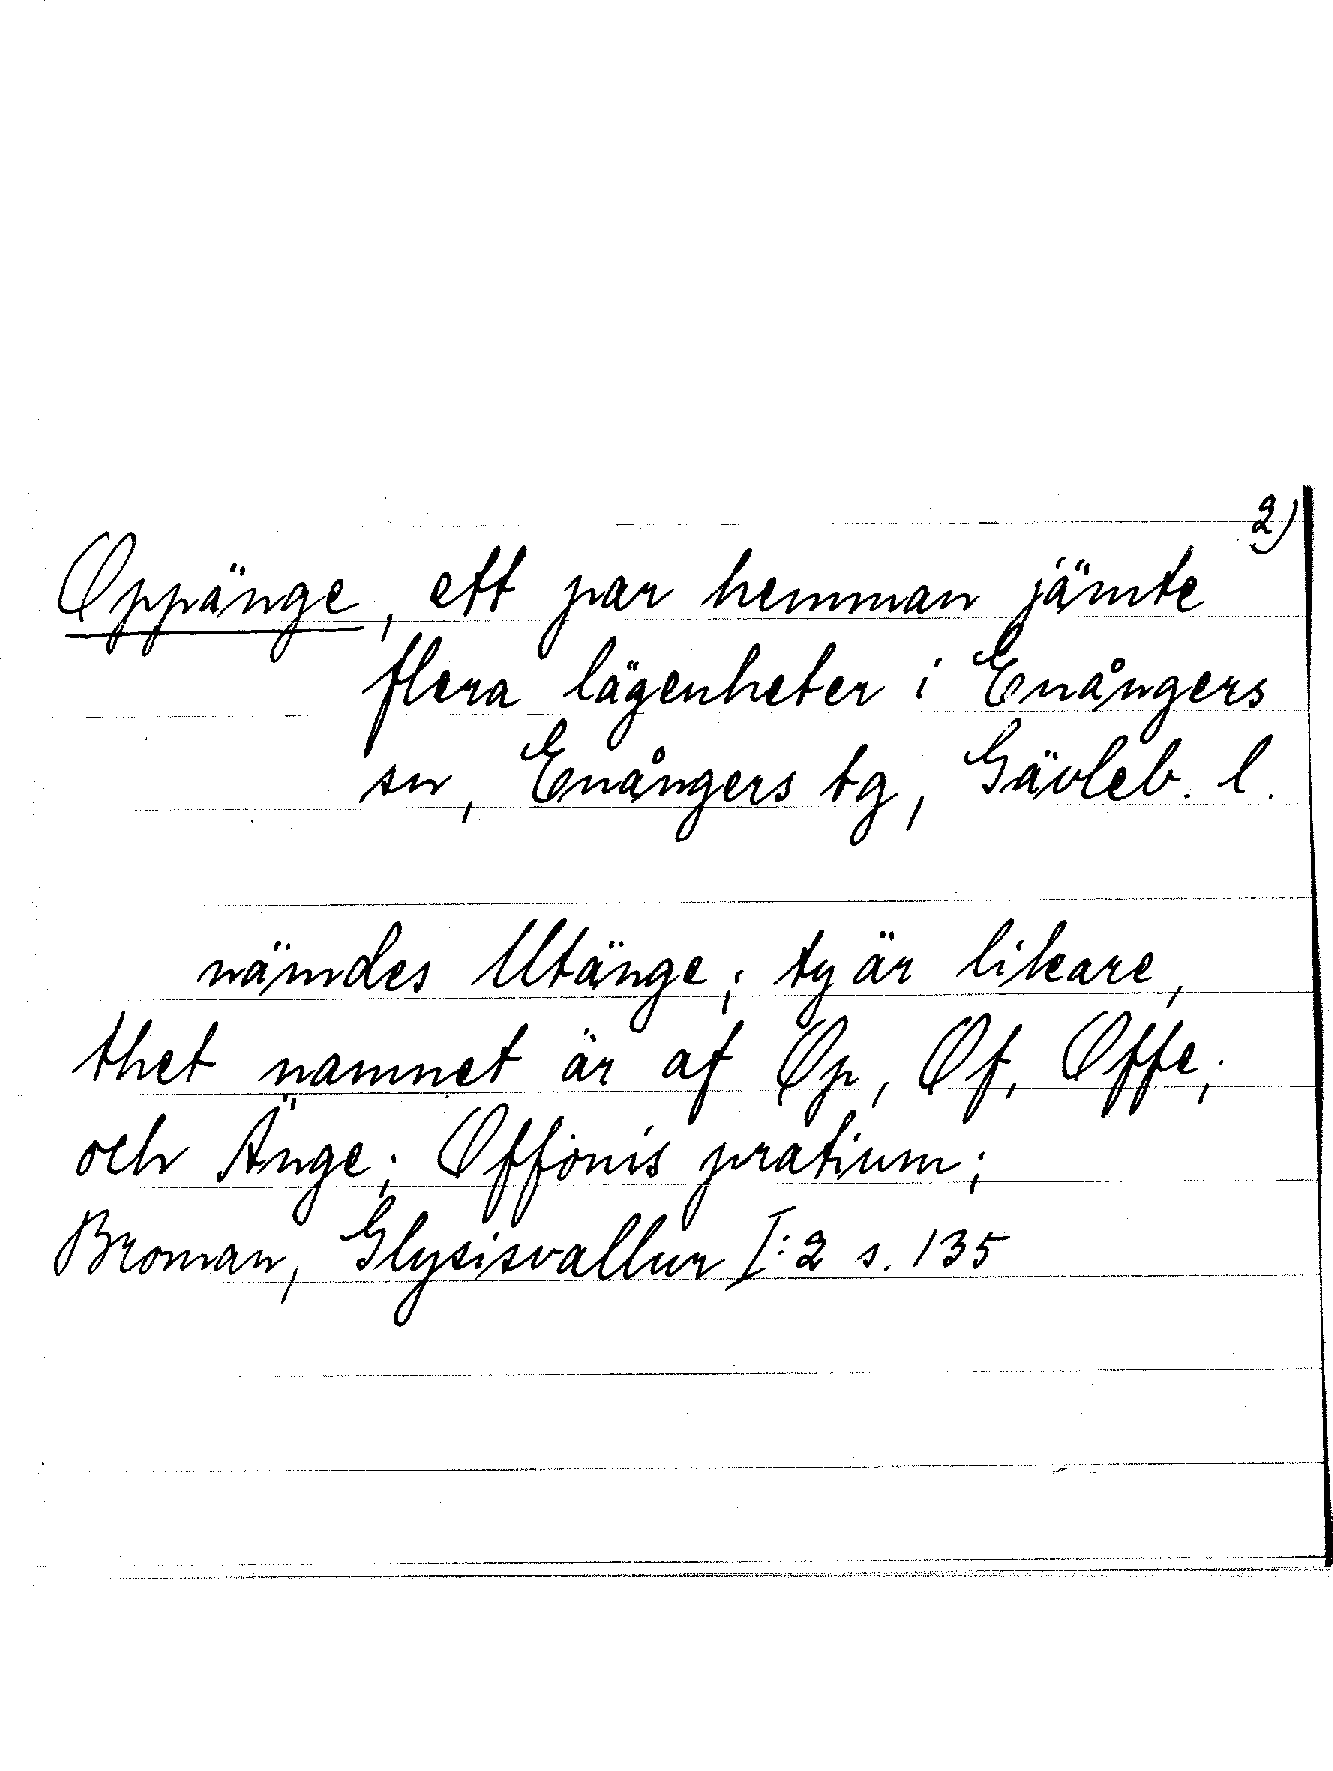 2)
Oppänge, ett par hemman jämte
flera lägenheter i Enångers
sn, Enångers tg, Gävleb. l.
nämdes Utänge; ty är likare,
thet namnet är af Op, Of, Offe,
och Änge; Offonis pratium;
Broman, Glysisvallur I:2 s. 135